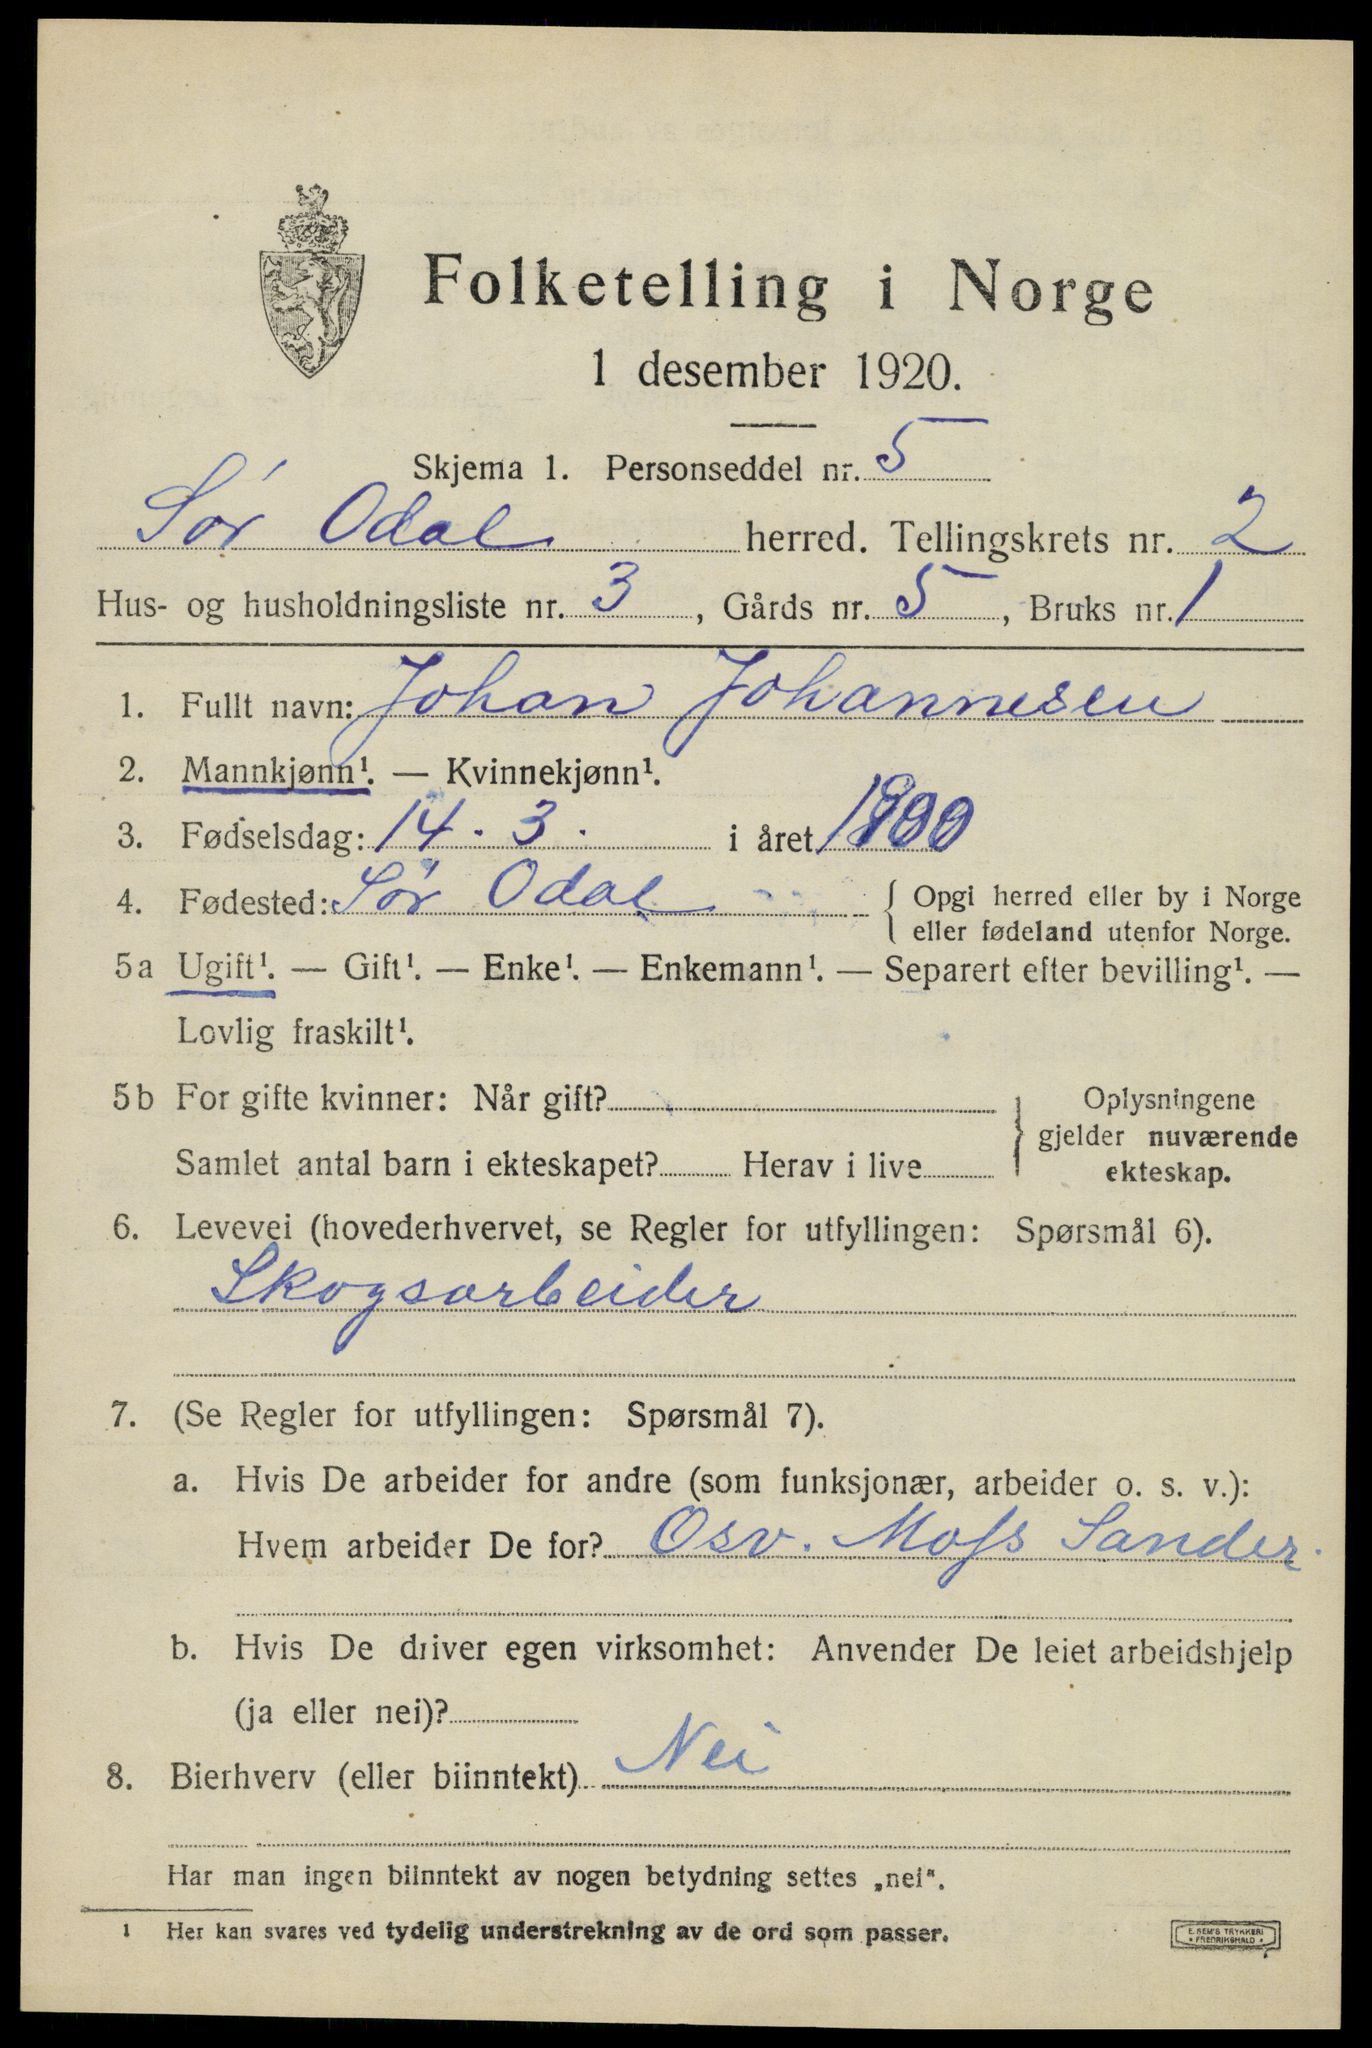 Folketelling i Norge
1 desember 1920.
Skjema 1. Personseddel nr. 5
Sør Odal herred. Tellingskrets nr. 2
Hus- og husholdningsliste nr. 3, Gårds nr. 5, Bruks nr. 1
1. Fullt navn: Johan Johannesen
2. Mannkjønn¹. — Kvinnekjønn¹.
3. Fødselsdag: 14. 3. i året 1900
4. Fødested: Sør Odal { Opgi herred eller by i Norge
eller fødeland utenfor Norge.
5a Ugift¹. — Gift¹. — Enke¹. — Enkemann¹. — Separert efter bevilling¹. —
Lovlig fraskilt¹.
5b For gifte kvinner: Når gift? } Oplysningene
gjelder nuværende
Samlet antal barn i ekteskapet? Herav i live ekteskap.
6. Levevei (hovederhvervet, se Regler for utfyllingen: Spørsmål 6).
Skogsarbeider
7. (Se Regler for utfyllingen: Spørsmål 7).
a. Hvis De arbeider for andre (som funksjonær, arbeider o. s. v.):
Hvem arbeider De for? Osv. Moss Sander.
b. Hvis De driver egen virksomhet: Anvender De leiet arbeidshjelp
(ja eller nei)?
8. Bierhverv (eller biinntekt) Nei
Har man ingen biinntekt av nogen betydning settes „nei“.
1 Her kan svares ved tydelig understrekning av de ord som passer.
E. SEM'S TRYKKERI
• FREDRIKSHALD •